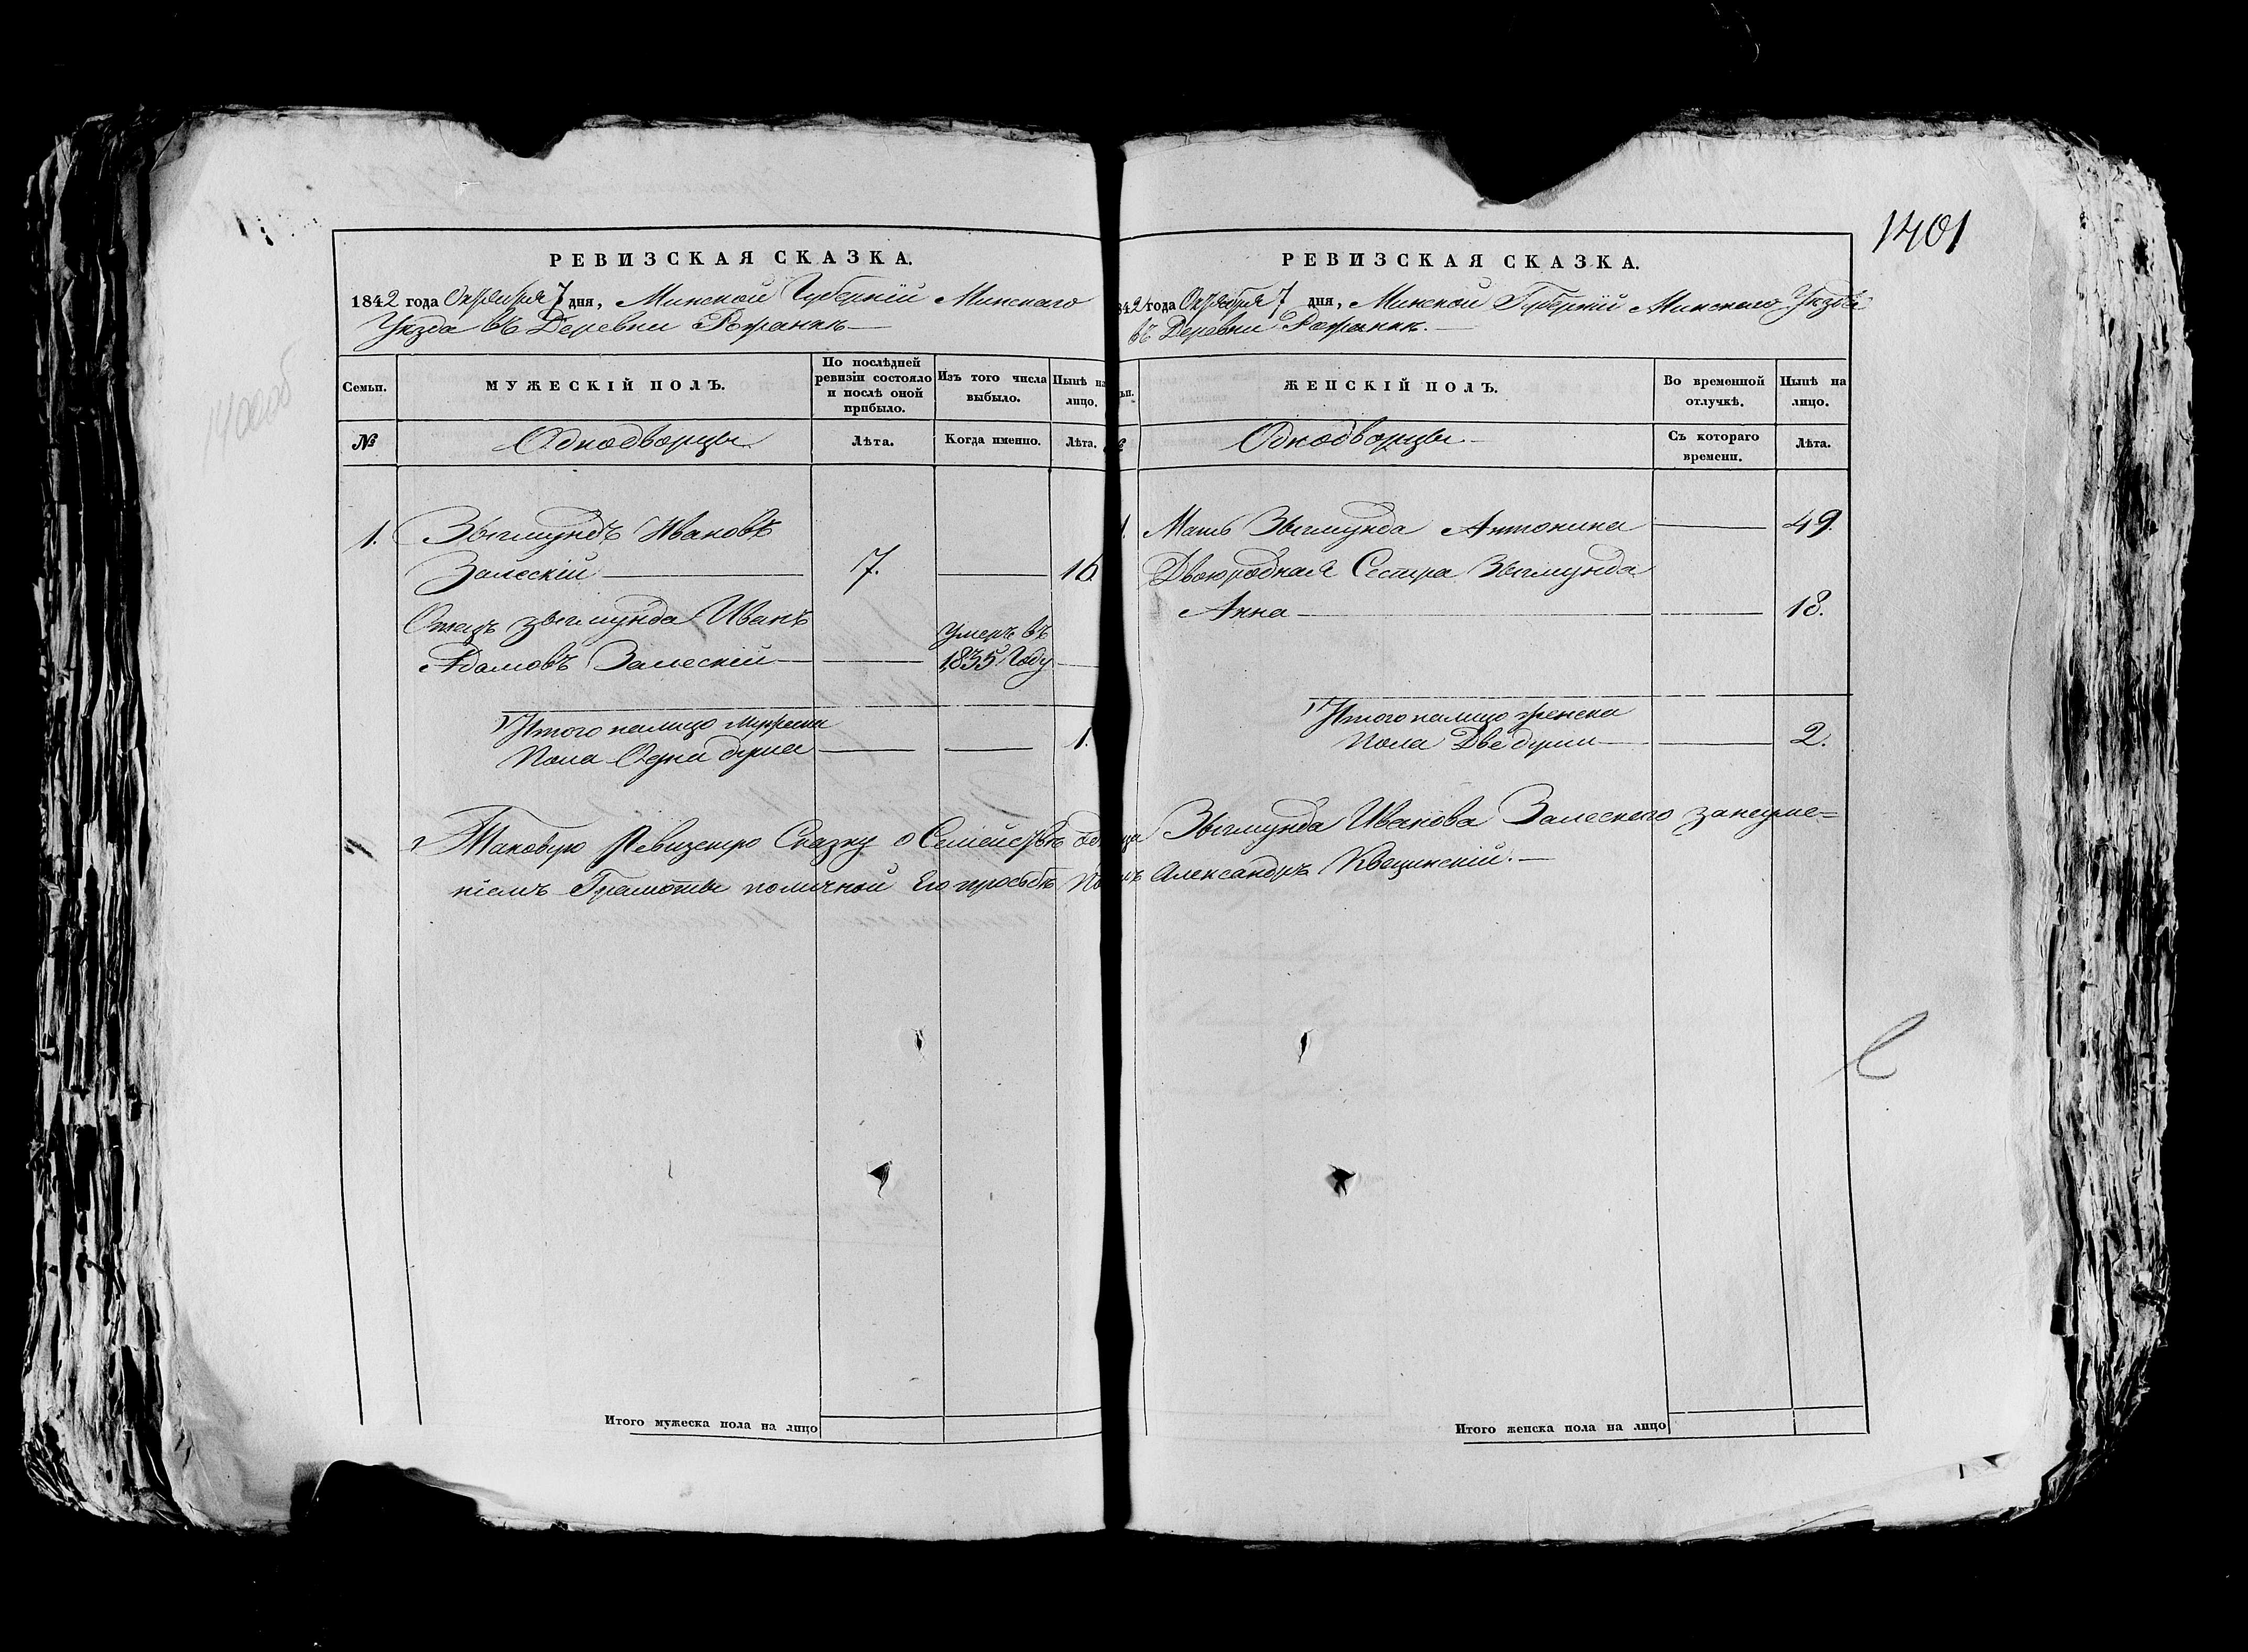 1401
РЕВИЗСКАЯ СКАЗКА.
1842 года Октября 7 дня, Минской Губерніи Минскаго
Уѣзда въ Деревни Рожанкѣ
Семьи.
МУЖЕСКІЙ ПОЛЪ.
По послѣдней ревизіи состояло и послѣ оной прибыло.
Изъ того числа выбыло.
Нынѣ на лицо.
№
Однодворцы
Лѣта.
Когда именно.
Лѣта.
1. Зыгмундъ Ивановъ
Залескій 7. 16
Отецъ Зыгмунда Иванъ
Адамовъ Залескій
умеръ въ
1835 Году
Итого налицо мужеска
Пола Одна душа 1.
Таковую Ревизскую Сказку о Семействѣ
ніемъ Грамоты по личной Его просьбѣ
Итого мужеска пола на лицо
РЕВИЗСКАЯ СКАЗКА.
842 года Октября 7 дня, Минской Губерніи Минскаго Уѣзда
въ Деревни Рожанкѣ.
ЖЕНСКІЙ ПОЛЪ.
Во временной отлучкѣ.
Нынѣ на лицо.
Однодворцы
Съ котораго времени.
Лѣта.
1. Мать Зыгмунда Антонина 49.
Двоюродная Сестра Зыгмунда
Анна 18.
Итого налицо женска
Пола Две души 2.
Зыгмунда Иванова Залескаго занеуме=
Александръ Квецинскій.
Итого женска пола на лицо